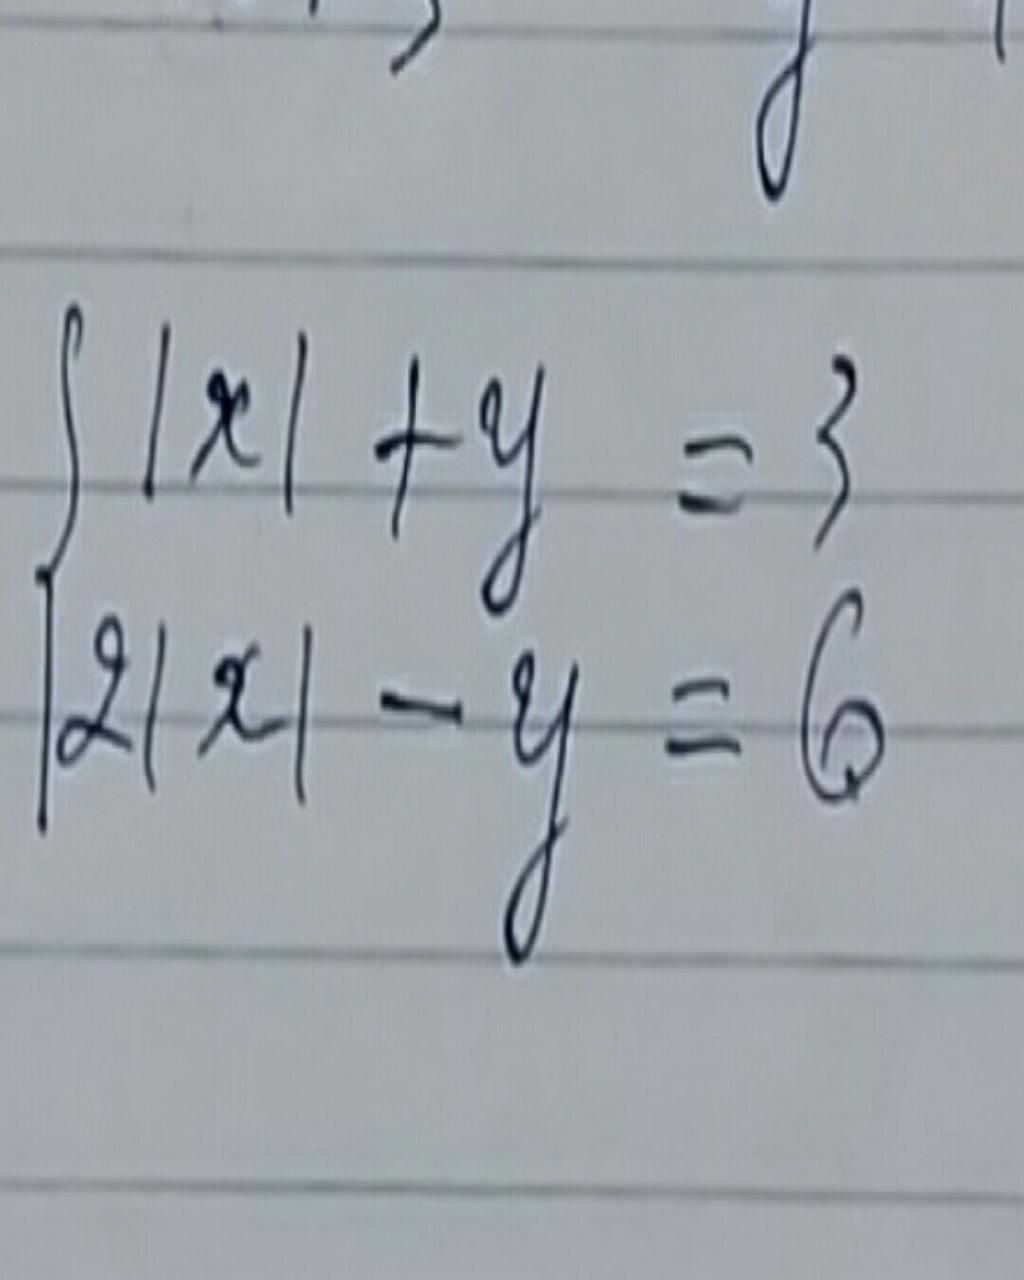 |x| + y = 3
2|x| - y = 6